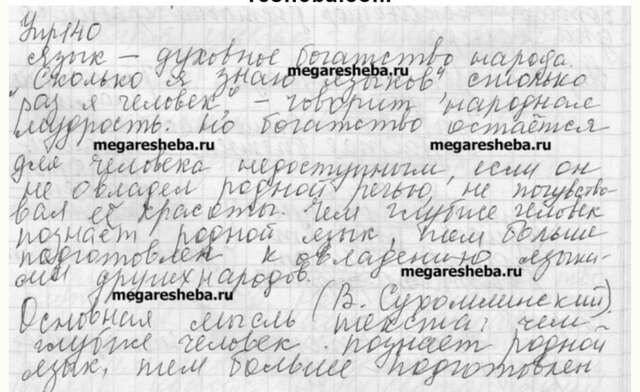 resheba.com
Упр140
Язык – духовное богатство народа.
megaresheba.ru
"Сколько я знаю языков, столько
раз я человек", – говорит народная
мудрость. Но богатство остаётся
megaresheba.ru megaresheba.ru
для человека недоступным, если он
не овладел родной речью, не почувство-
вал её красоты. Чем глубже человек
познаёт родной язык, тем больше
подготовлен к овладению языка-
megaresheba.ru
ми других народов.
megaresheba.ru
(В. Сухомлинский).
Основная мысль текста: чем
глубже человек познает родной
язык, тем больше подготовлен